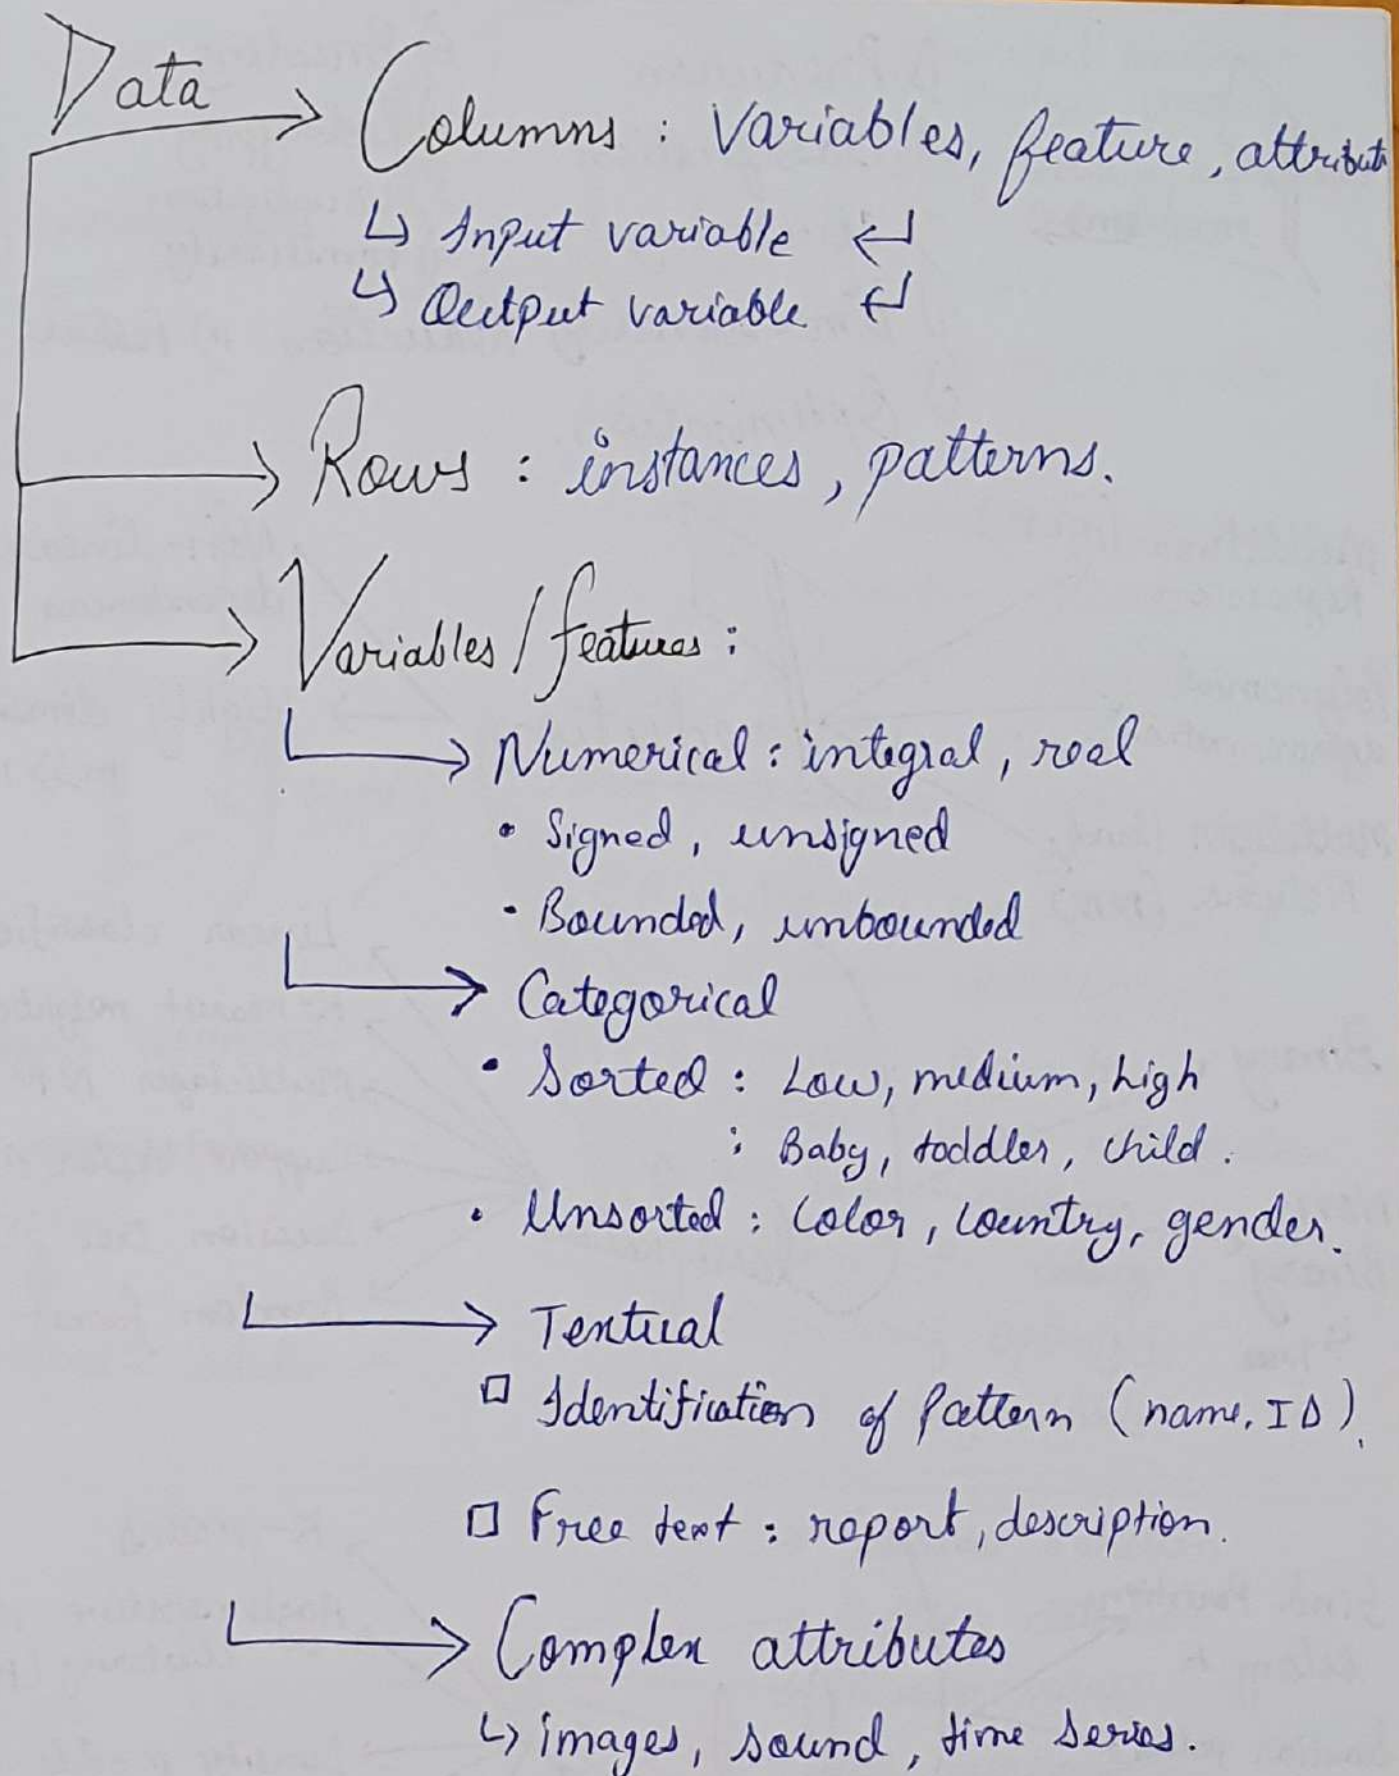 Data
Columns : Variables, feature, attribut
↳ Input variable ↵
↳ Output variable ↵
Rows : instances, patterns.
Variables / features :
Numerical : integral, real
• Signed, unsigned
• Bounded, unbounded
Categorical
• Sorted : Low, medium, high
: Baby, toddler, child.
• Unsorted : Color, Country, gender.
Textual
□ Identification of pattern (name, ID).
□ Free text : report, description.
Complex attributes
↳ images, sound, time series.